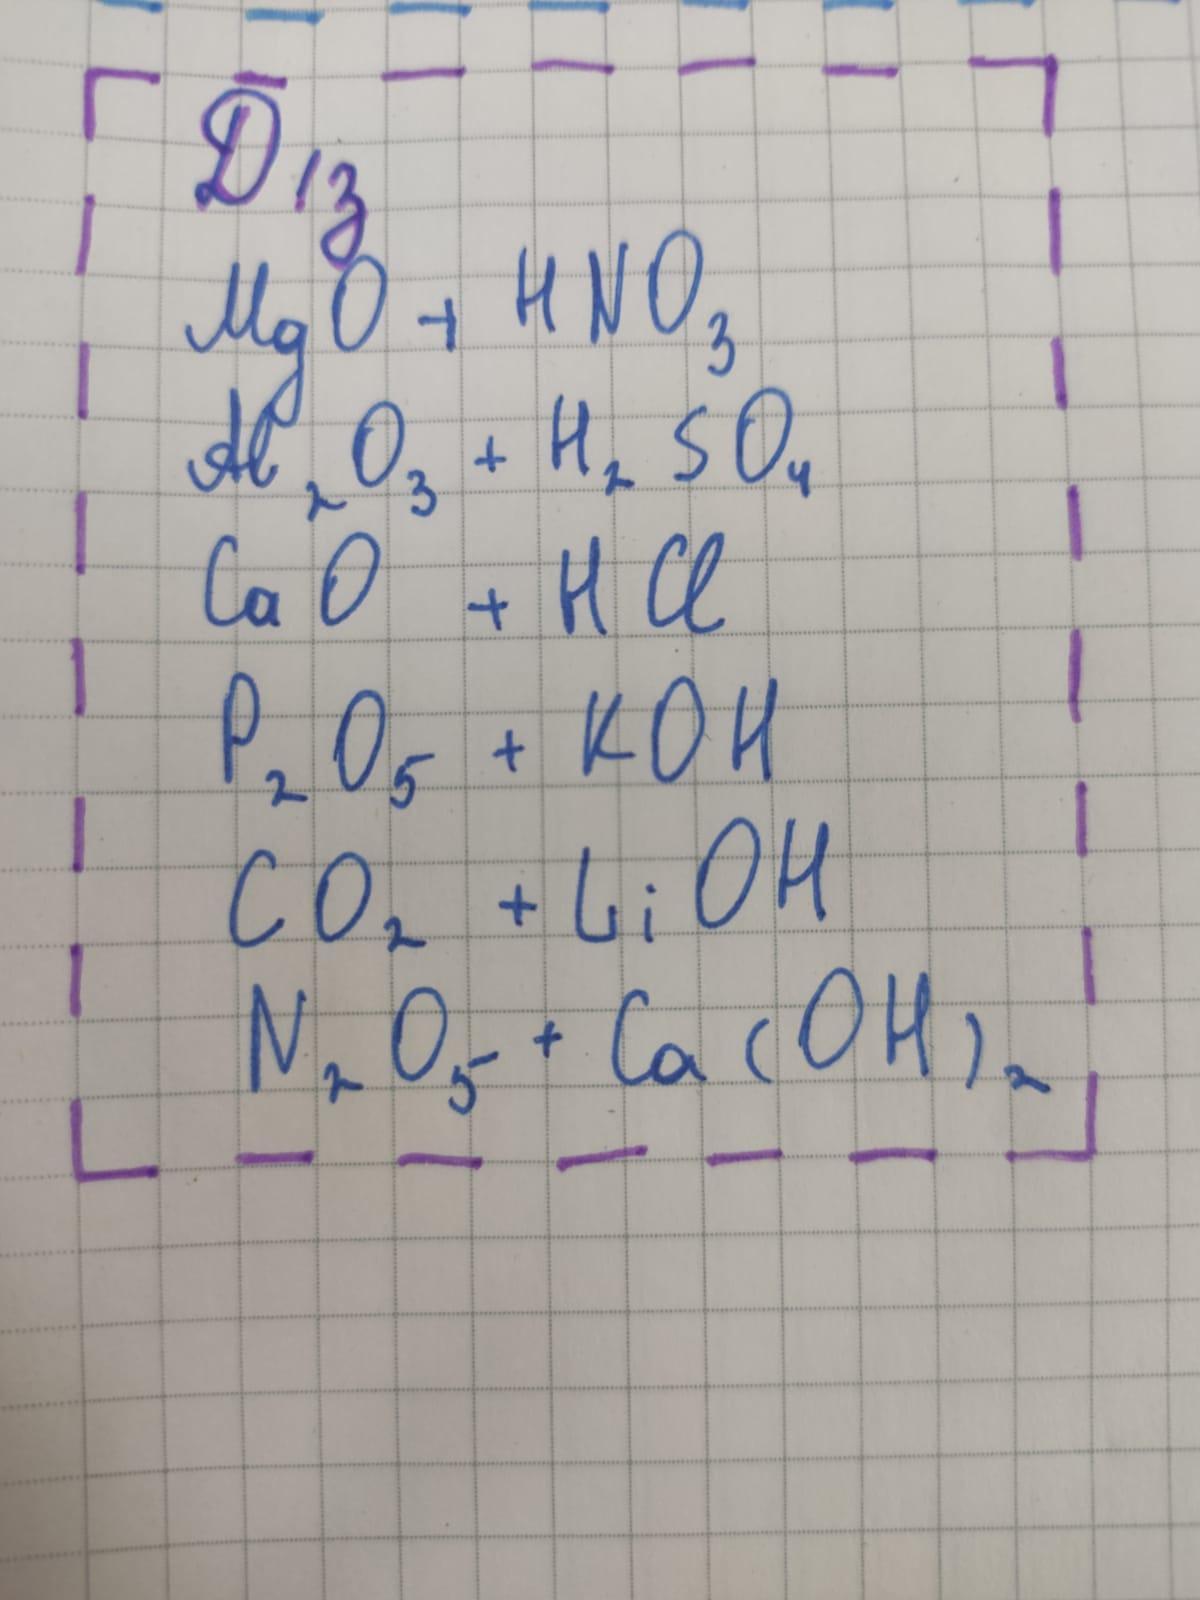 Д/з
MgO + HNO₃
Al₂O₃ + H₂SO₄
CaO + HCl
P₂O₅ + KOH
CO₂ + LiOH
N₂O₅ + Ca(OH)₂